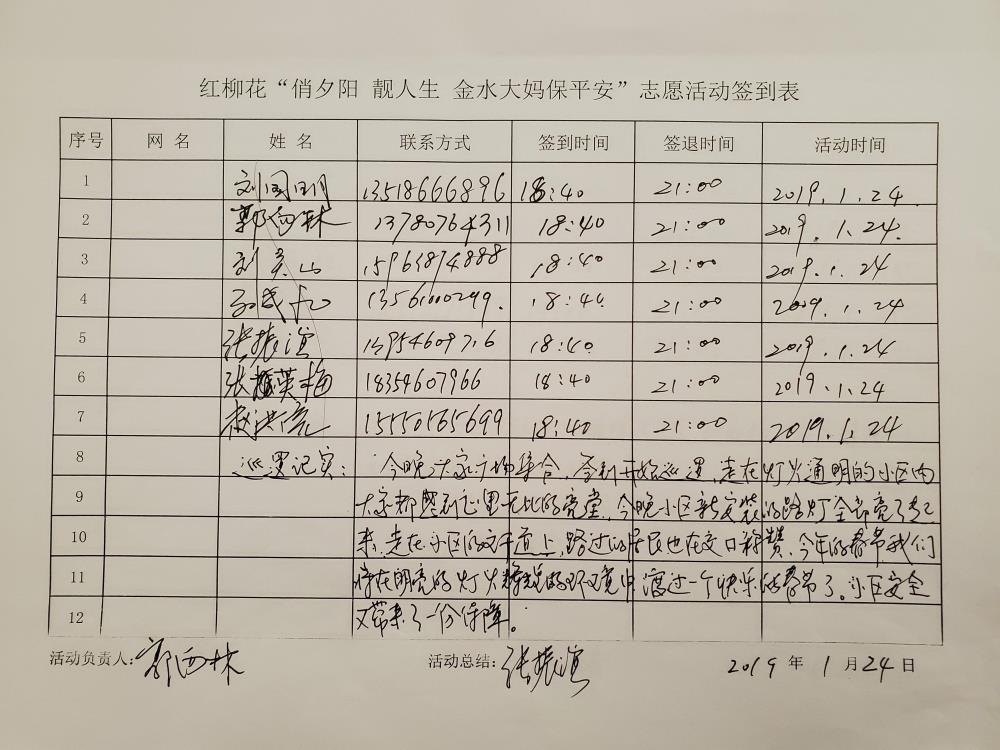 红柳花“俏夕阳 靓人生 金水大妈保平安”志愿活动签到表
序号 网 名 姓 名 联系方式 签到时间 签退时间 活动时间
1 刘国明 13518666896 18:40 21:00 2019.1.24.
2 郭西林 13780764311 18:40 21:00 2019.1.24.
3 刘英山 15963874888 18:40 21:00 2019.1.24
4 13561000299. 18:40 21:00 2009.1.24
5 张振谊 13954609716 18:40 21:00 2019.1.24
6 张英梅 18354607966 18:40 21:00 2019.1.24
7 赵洪亮 15550165699 18:40 21:00 2019.1.24
8 巡逻记实: 今晚大家广场集合,签到开始巡逻,走在灯火通明的小区内
9 大家都感到心里无比的亮堂,今晚小区新安装的路灯全部亮了起
10 来,走在小区的文干道上,路过的居民也在交口称赞,今年的春节我们
11 将在明亮的灯火的环境中渡过一个快乐的春节了。小区安全
12 又带来了一份保障。
活动负责人:郭西林 活动总结:张振谊 2019 年 1 月 24 日